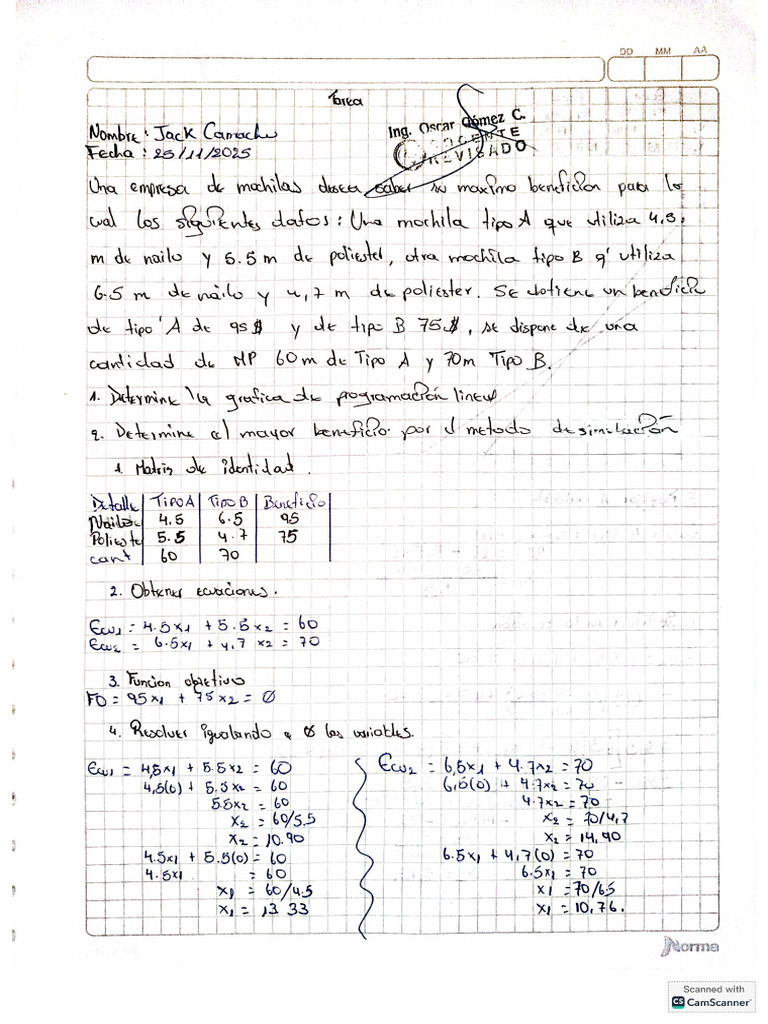 DD MM AA
Tarea
Nombre: Jack Camacho
Ing. Oscar Gómez C.
DOCENTE
REVISADO
Fecha: 25/11/2025
Una empresa de mochilas desea saber su maximo beneficion para lo
cual los siguientes datos: Una mochila tipo A que utiliza 4,5
m de nailo y 5.5 m de poliester, otra mochila tipo B q' utiliza
6.5 m de nailo y 4,7 m de poliester. Se obtiene un beneficio
de tipo A de 95$ y de tipo B 75$, se dispone de una
cantidad de MP 60m de Tipo A y 70m Tipo B.
1. Determine la grafica de programación lineal
2. Determine el mayor beneficio por el metodo de simulación
1. Matris de identidad.
Detalle | TIPO A | TIPO B | Beneficio
Nailo | 4.5 | 6.5 | 95
Polieste | 5.5 | 4.7 | 75
cant | 60 | 70
2. Obtener ecuaciones.
Ecu1 = 4.5x1 + 5.5x2 = 60
Ecu2 = 6.5x1 + 4,7x2 = 70
3. Funcion objetivo
FO = 95x1 + 75x2 = Ø
4. Resolver igualando a Ø las variables.
Ecu1 = 4,5x1 + 5.5x2 = 60
4,5(0) + 5.5x2 = 60
5.5x2 = 60
x2 = 60/5.5
x2 = 10.90
4.5x1 + 5.5(0) = 60
4.5x1 = 60
x1 = 60/4.5
x1 = 13 33
Ecu2 = 6,5x1 + 4.7x2 = 70
6,5(0) + 4.7x2 = 70
4.7x2 = 70
x2 = 70/4,7
x2 = 14,90
6.5x1 + 4,7(0) = 70
6.5x1 = 70
x1 = 70/6.5
x1 = 10,76.
Norma
Scanned with
CS CamScanner